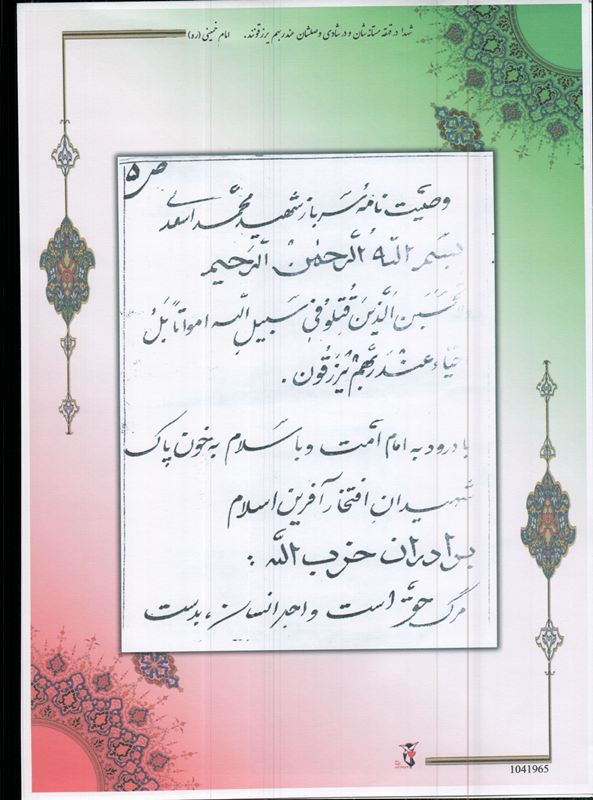 شهدا در قهقهه مستانه‌شان و در شادی وصلشان عند ربهم یرزقونند. امام خمینی (ره)
ص ۵
وصیّت نامهٔ سرباز شهید محمّد اسعدی
بسم اللّه الرّحمٰن الرّحیم
تحسبن الّذین قُتِلوا فی سبیل اللّه امواتاً بَلْ
احیاء عِنْدَ ربّهِمْ یُرْزَقُون .
با درود به امام امّت و با سلام به خون پاک
شهیدانِ افتخار آفرین اسلام
برادران حزب اللّه :
مرگ حقّ است و اجل انسان ، بدست
1041965